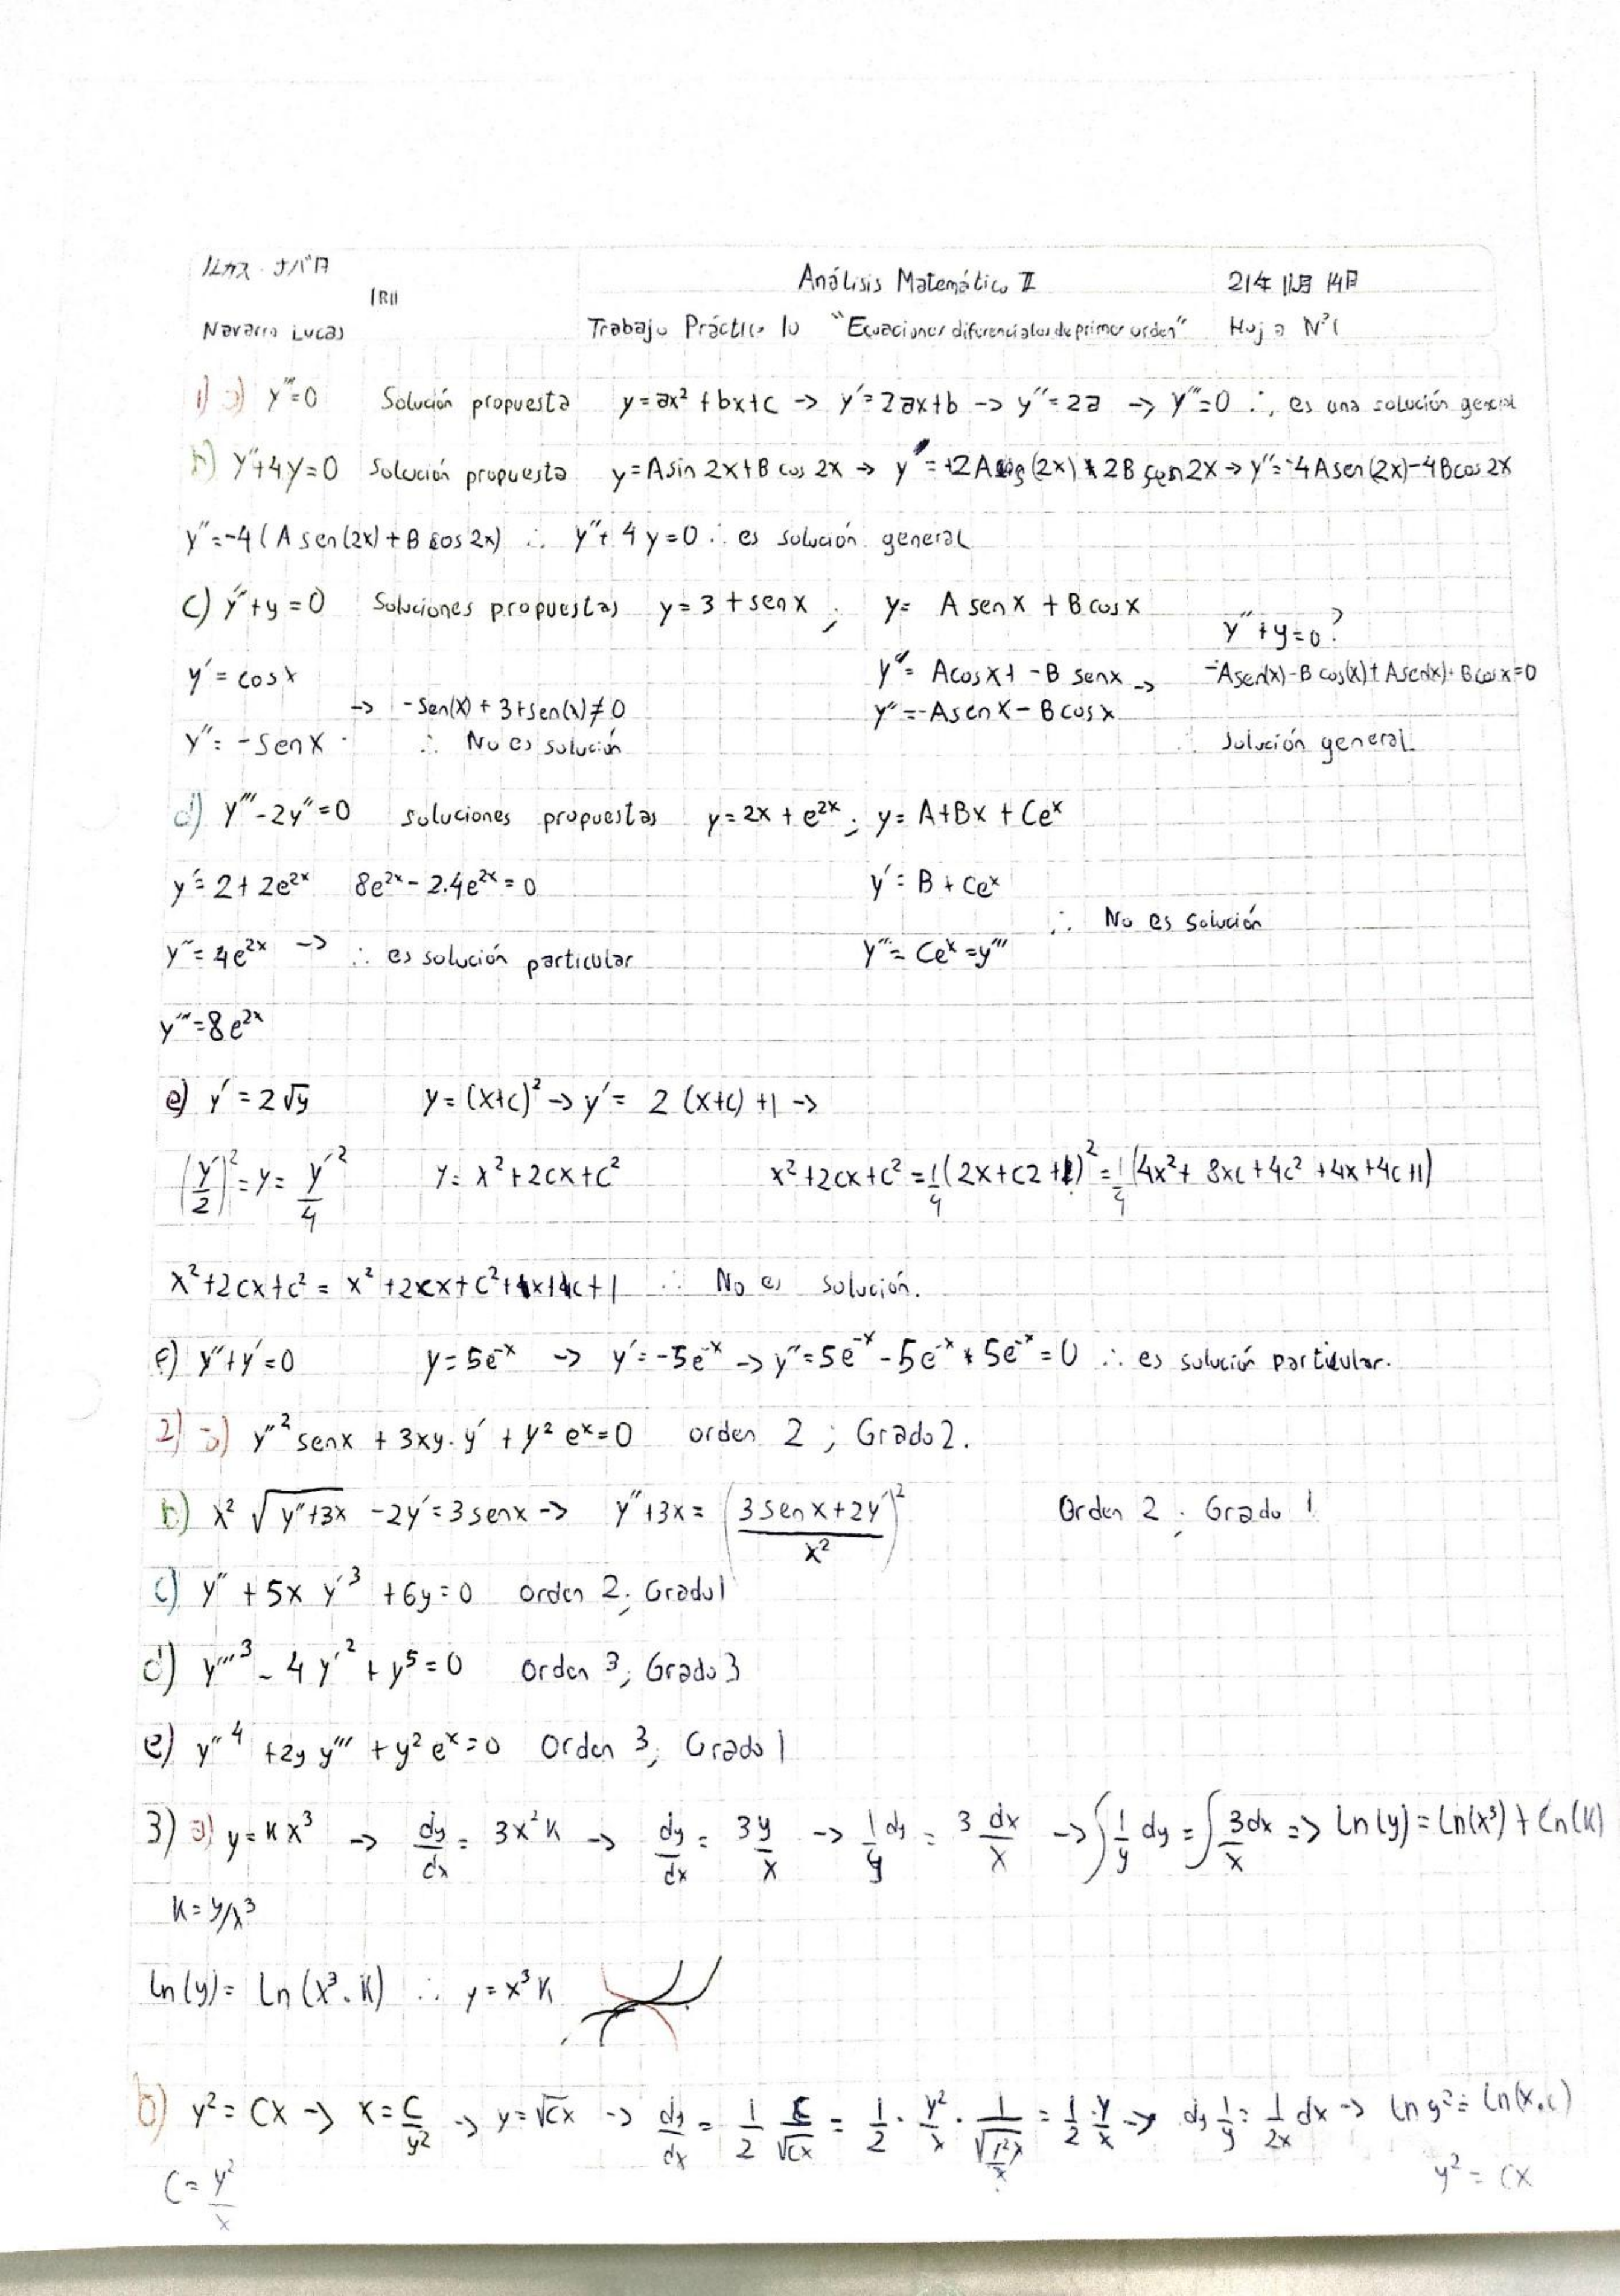 ルカス・ナバロ
1R11
Análisis Matemático II
21年 11月 14日
Navarro Lucas
Trabajo Práctico 10 "Ecuaciones diferenciales de primer orden"
Hoja N°1
1) a) y'''=0 Solución propuesta y=ax² + bx+c -> y'=2ax+b -> y''=2a -> y'''=0 ∴, es una solución general
b) y''+4y=0 Solución propuesta y=Asin 2x+B cos 2x -> y'=+2A cos(2x) - 2B sen 2x -> y''=-4Asen(2x)-4Bcos 2x
y''=-4(A sen(2x) + B cos 2x) ∴ y''+4y=0 ∴ es solución general
c) y''+y=0 Soluciones propuestas y=3+senx ; y= A senx + B cosx
y''+y=0?
y'=cosx
y'= Acosx+ -B senx ->
-Asen(x)-B cos(x)+Asen(x)+Bcosx=0
-> -Sen(x)+3+sen(x)≠0
y''=-Asenx-Bcosx
y''=-senx
∴ No es solución
∴ Solución general.
d) y'''-2y''=0 soluciones propuestas y=2x+e^2x ; y= A+Bx+Ce^x
y'=2+2e^2x 8e^2x-2.4e^2x=0 y'=B+Ce^x
∴ No es solución
y''=4e^2x -> ∴ es solución particular y''=Ce^x=y'''
y'''=8e^2x
e) y'=2√y y=(x+c)² -> y'= 2 (x+c) +1 ->
(y'/2)²=y=y'²/4 y=x²+2cx+c² x²+2cx+c²=1/4(2x+c2+1)²=1/4(4x²+8xc+4c²+4x+4c+1)
x²+2cx+c²=x²+2cx+c²+4x+4c+1 ∴ No es solución.
f) y''+y'=0 y=5e^-x -> y'=-5e^-x -> y''=5e^-x -5e^-x+5e^-x=0 ∴ es solución particular.
2) a) y''² senx + 3xy.y' + y² e^x=0 orden 2 ; Grado 2.
b) x² √(y''+3x) -2y'=3senx -> y''+3x=((3senx+2y')/x²)² Orden 2 ; Grado 1
c) y''+5x y'³+6y=0 orden 2; Grado 1
d) y'''³-4y'²+y⁵=0 Orden 3; Grado 3
e) y''⁴+2y y'''+y² e^x=0 Orden 3; Grado 1
3) a) y=Kx³ -> dy/dx=3x²K -> dy/dx=3y/x -> 1/y dy=3 dx/x -> ∫1/y dy=∫3/x dx => Ln(y)=Ln(x³)+Ln(K)
K=y/x³
Ln(y)= Ln(x³.K) ∴ y=x³K
b) y²=Cx -> x=C/y² -> y=√Cx -> dy/dx=1/2 C/√Cx=1/2.y²/x.1/√(y²/x x)=1/2.y/x -> dy 1/y=1/2x dx -> Ln y²=Ln(x.c)
C=y²/x
y²=Cx